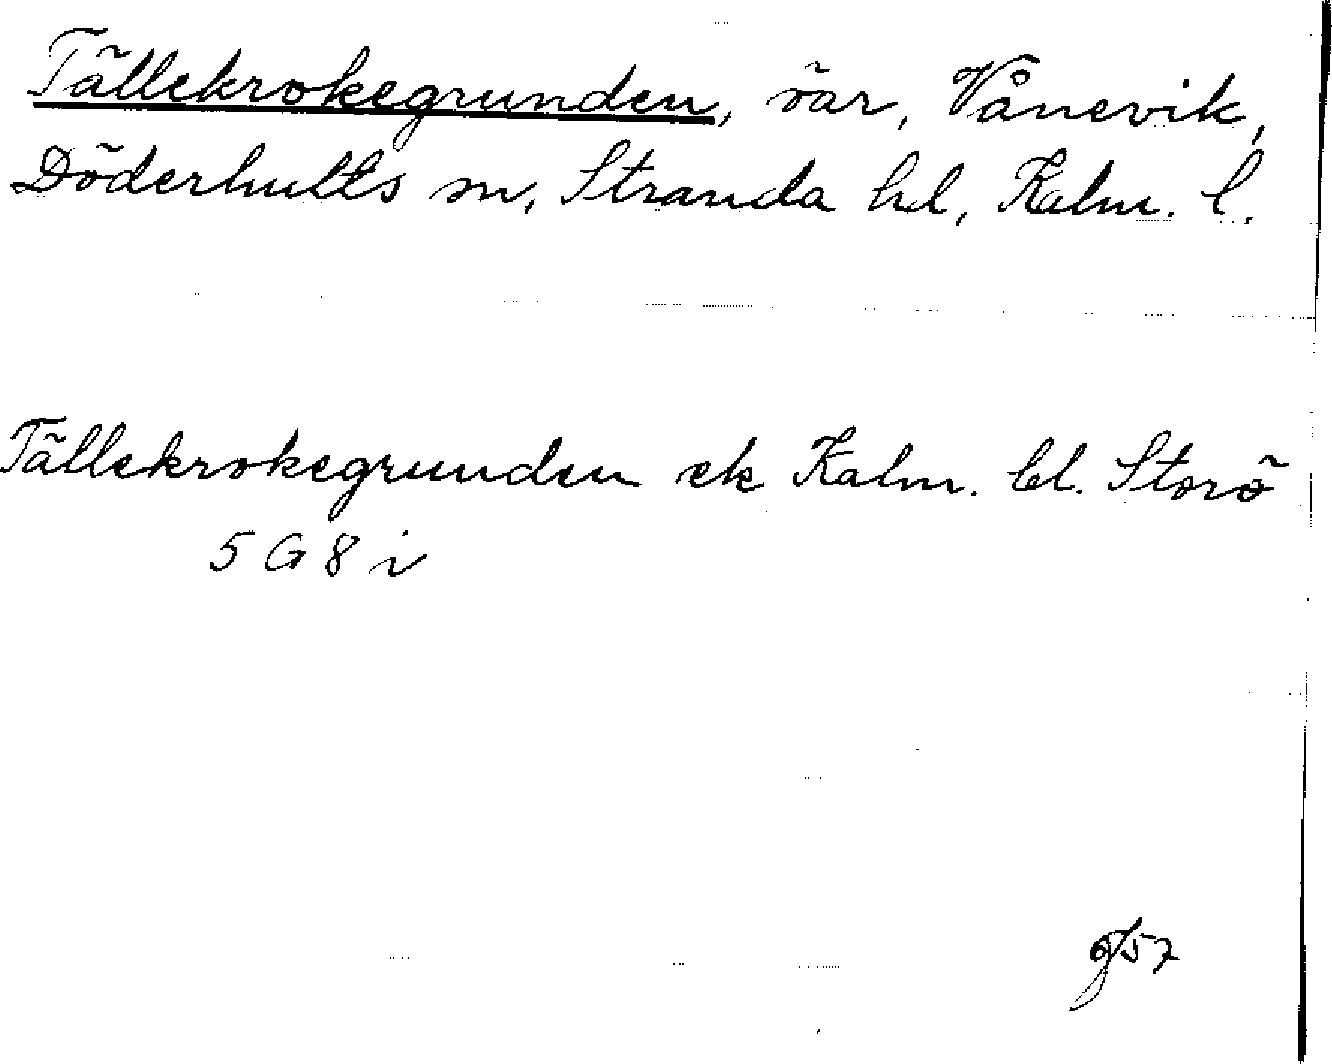 Tällekrokegrunden, öar, Vånevik,
Döderhults sn, Stranda hd, Kalm. l.
Tällekrokegrunden ek Kalm. bl. Storö
5 G 8 i
57